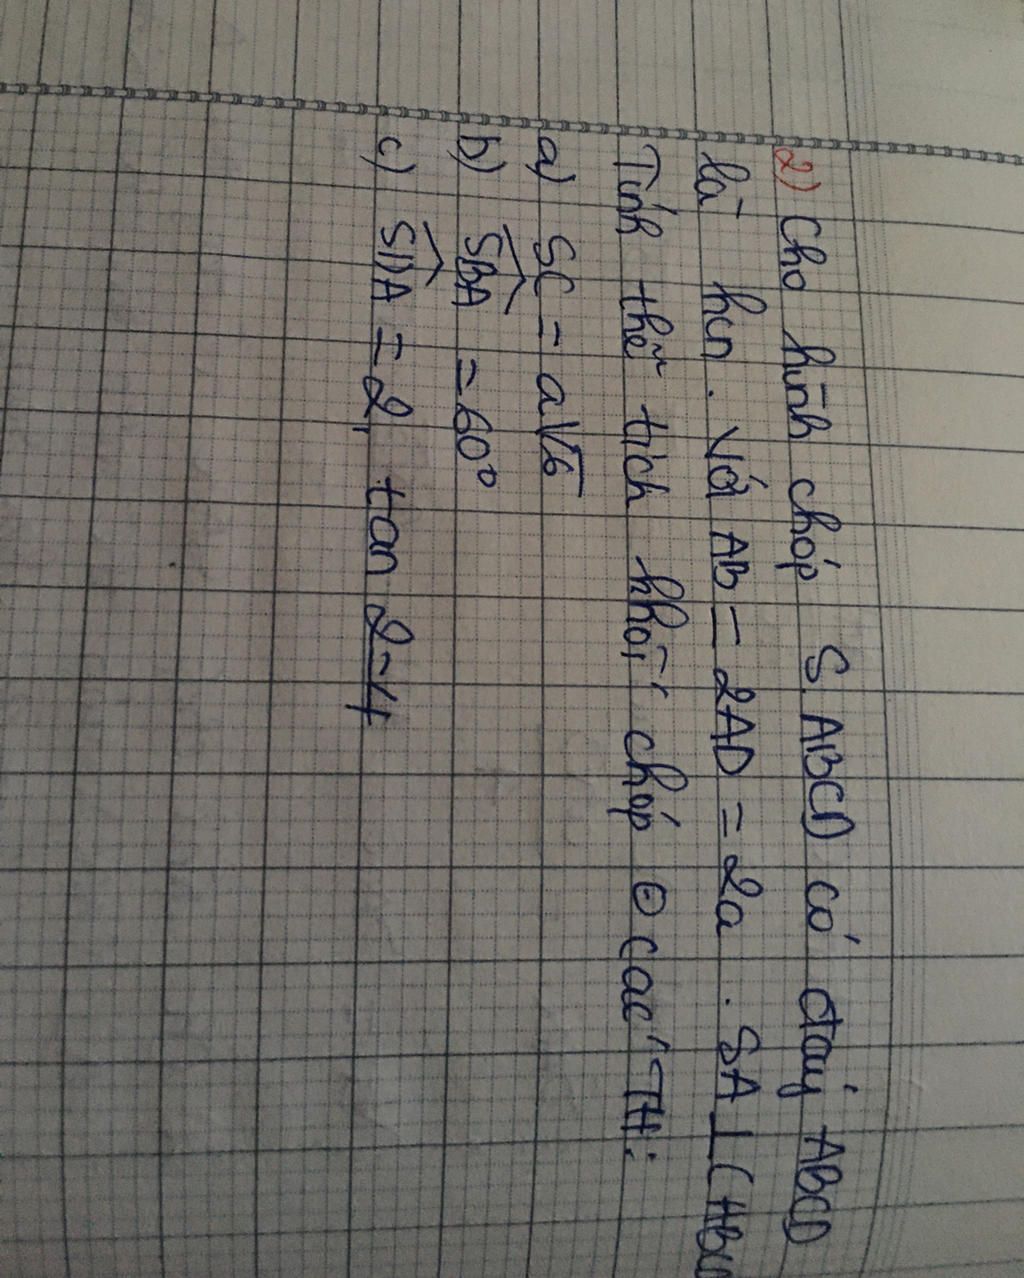 2) Cho hình chóp S.ABCD có đáy ABCD
là hcn. Với AB = 2AD = 2a. SA ⊥ (ABC
Tính thể tích khối chóp Θ các TH:
a) SC = a√6
b) \widehat{SBA} = 60°
c) \widehat{SDA} = 2, tan 2 = 4